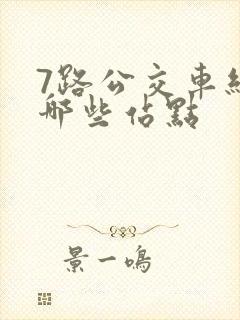 7路公交車經
哪些佔點
景一鳴